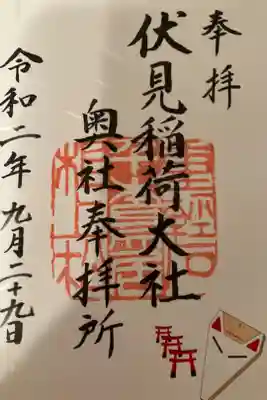 奉拝
伏見稲荷大社
奥社奉拝所
令和二年九月二十九日